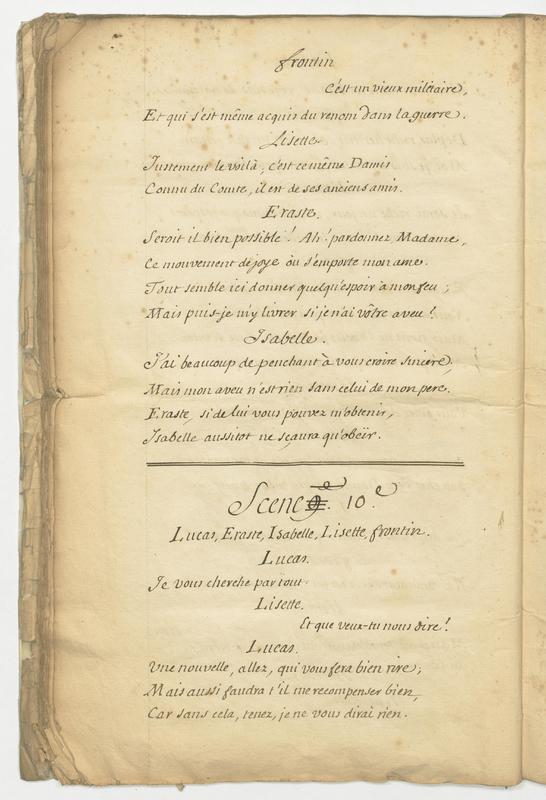 frontin
C'est un vieux militaire,
Et qui s'est même acquis du renom dans la guerre.
Lisette.
Justement le voilà, c'est ce même Damis
Connu du Comte, il est de ses anciens amis.
Eraste.
Seroit il bien possible! Ah! pardonnez Madame,
Ce mouvement de joye où s'emporte mon ame.
Tout semble ici donner quelqu'espoir à mon feu;
Mais puis-je m'y livrer si je n'ai vôtre aveu!
Isabelle.
J'ai beaucoup de penchant à vous croire sincere,
Mais mon aveu n'est rien sans celui de mon pere.
Eraste, si de lui vous pouvez m'obtenir,
Isabelle aussitot ne sçaura qu'obeïr.
Scene 9e. 10e
Lucas, Eraste, Isabelle, Lisette, frontin.
Lucas.
Je vous cherche partout.
Lisette.
Et que veux-tu nous dire!
Lucas.
Une nouvelle, allez, qui vous fera bien rire;
Mais aussi faudra t'il me recompenser bien,
Car sans cela, tenez, je ne vous dirai rien.